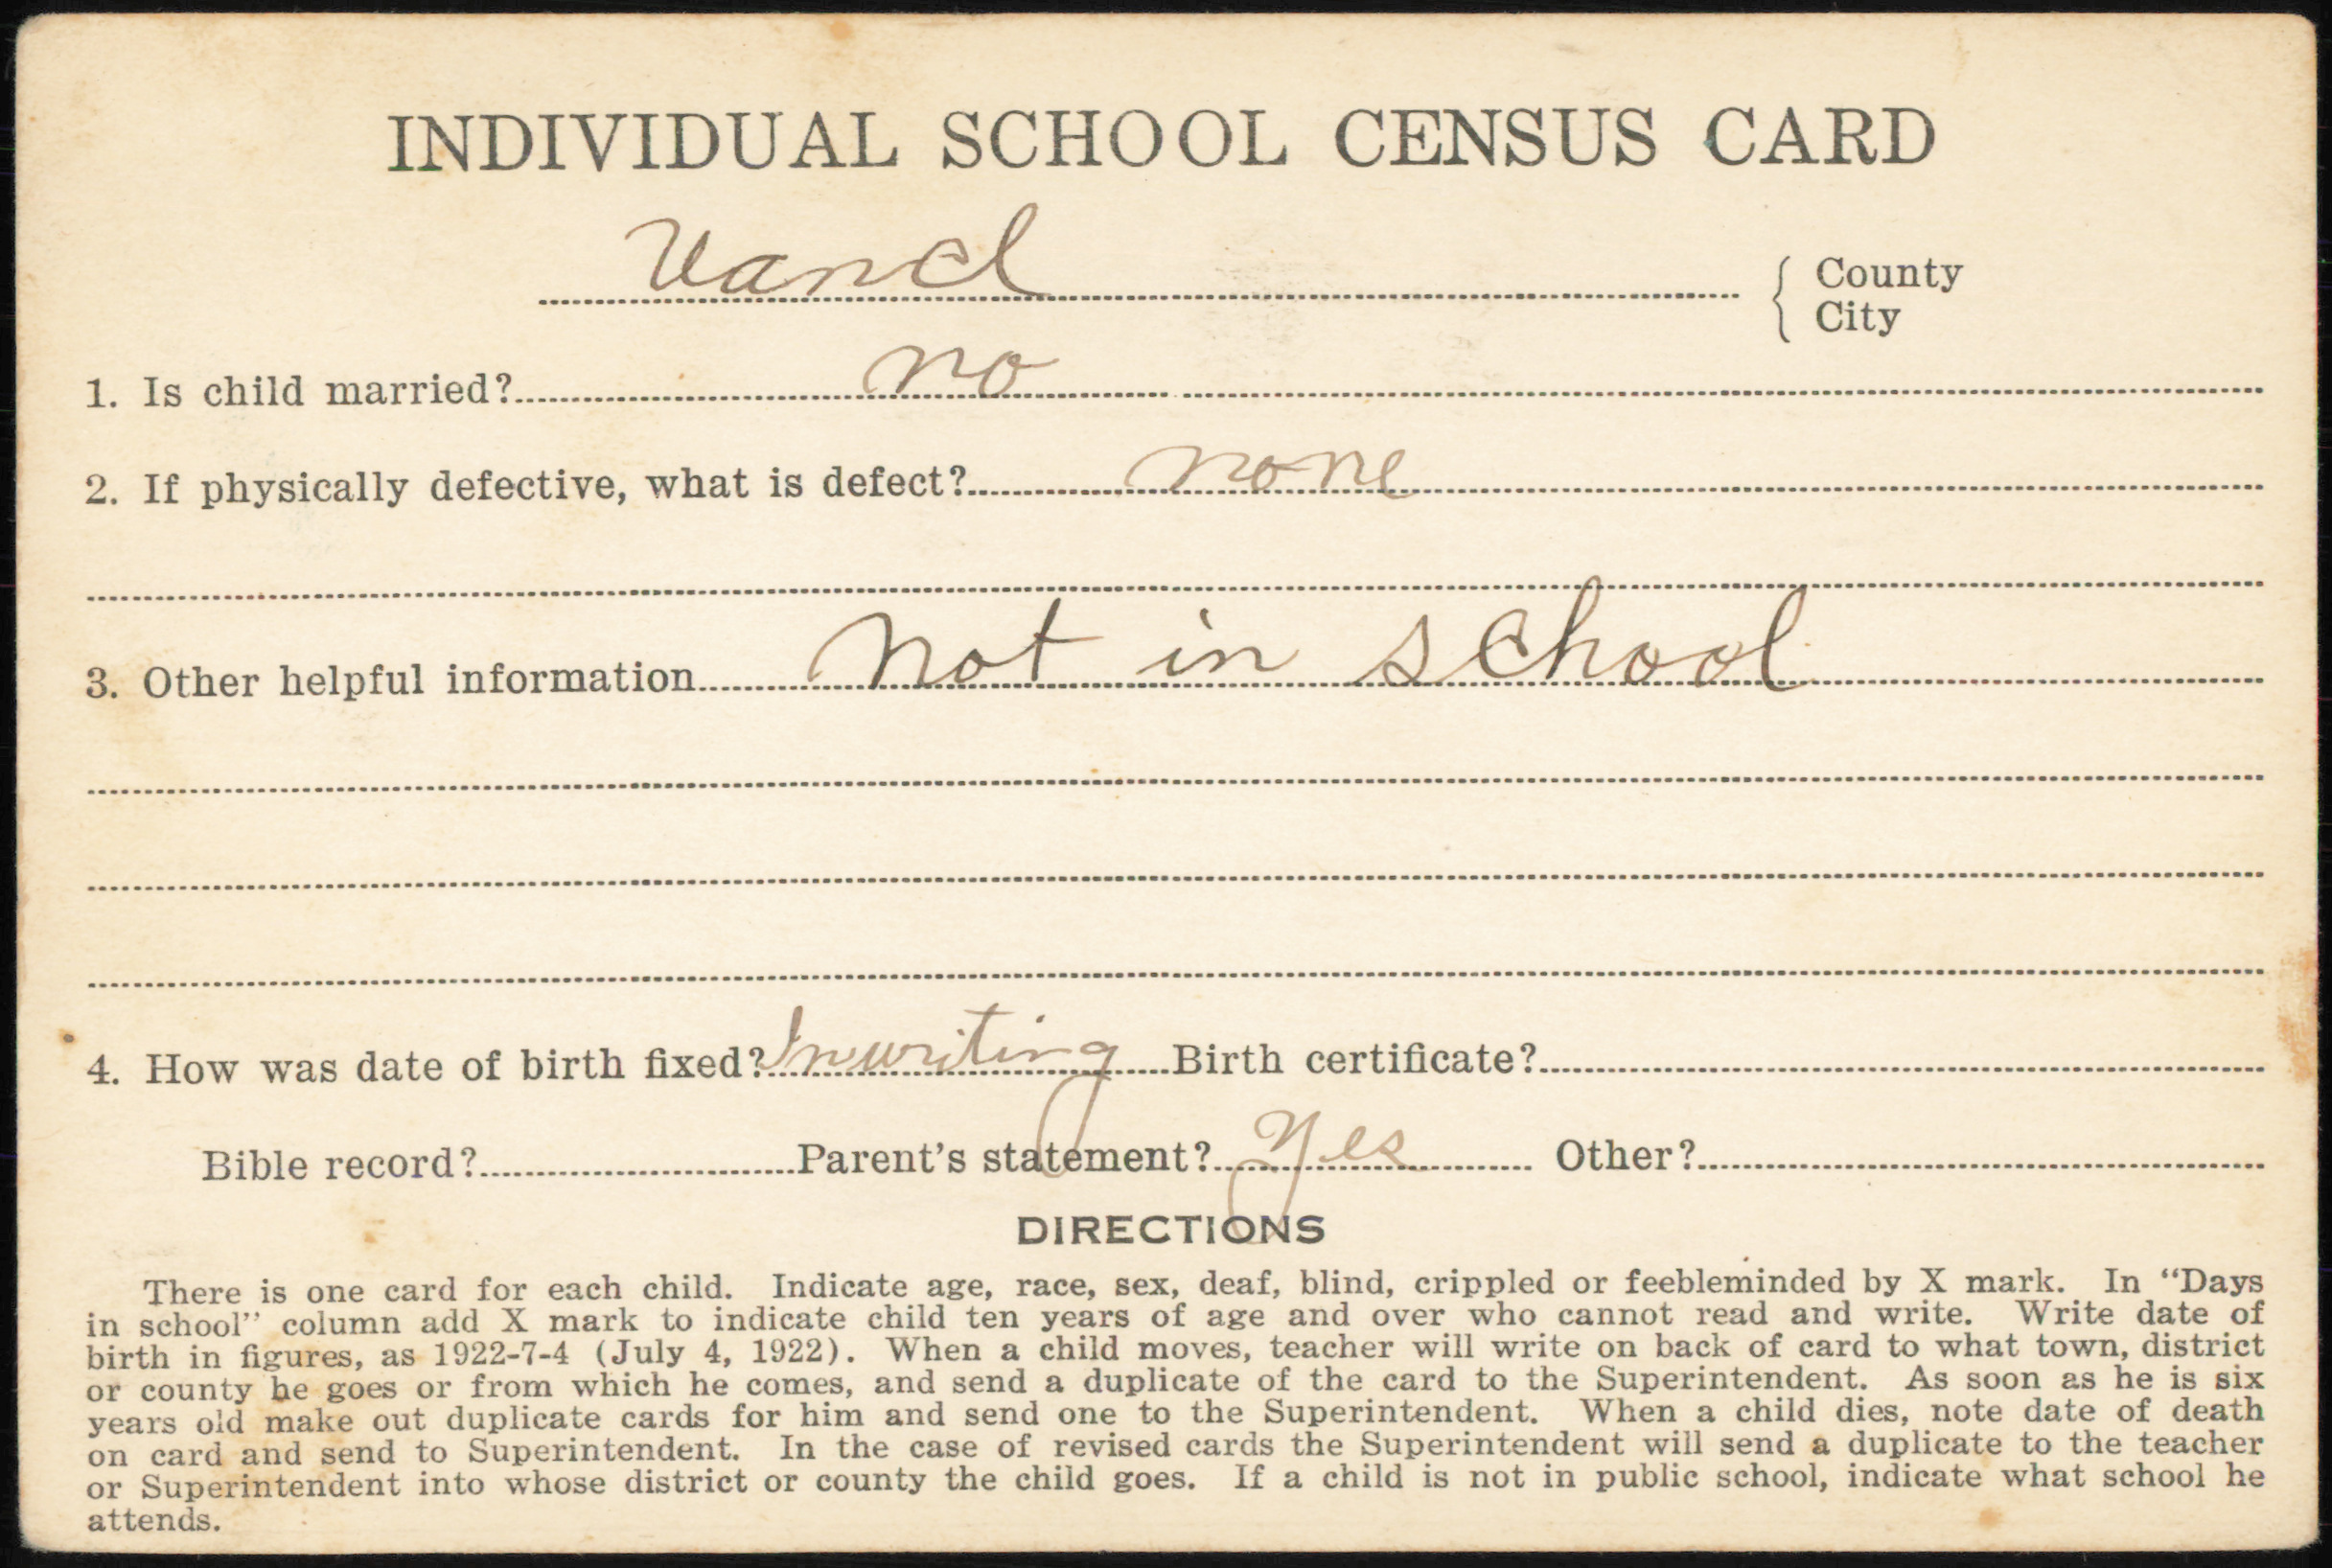 INDIVIDUAL SCHOOL CENSUS CARD
Vancl { County
City
1. Is child married? no
2. If physically defective, what is defect? none
3. Other helpful information not in school
4. How was date of birth fixed? Inwriting Birth certificate?
Bible record? Parent's statement? Yes Other?
DIRECTIONS
There is one card for each child. Indicate age, race, sex, deaf, blind, crippled or feebleminded by X mark. In “Days
in school” column add X mark to indicate child ten years of age and over who cannot read and write. Write date of
birth in figures, as 1922-7-4 (July 4, 1922). When a child moves, teacher will write on back of card to what town, district
or county he goes or from which he comes, and send a duplicate of the card to the Superintendent. As soon as he is six
years old make out duplicate cards for him and send one to the Superintendent. When a child dies, note date of death
on card and send to Superintendent. In the case of revised cards the Superintendent will send a duplicate to the teacher
or Superintendent into whose district or county the child goes. If a child is not in public school, indicate what school he
attends.